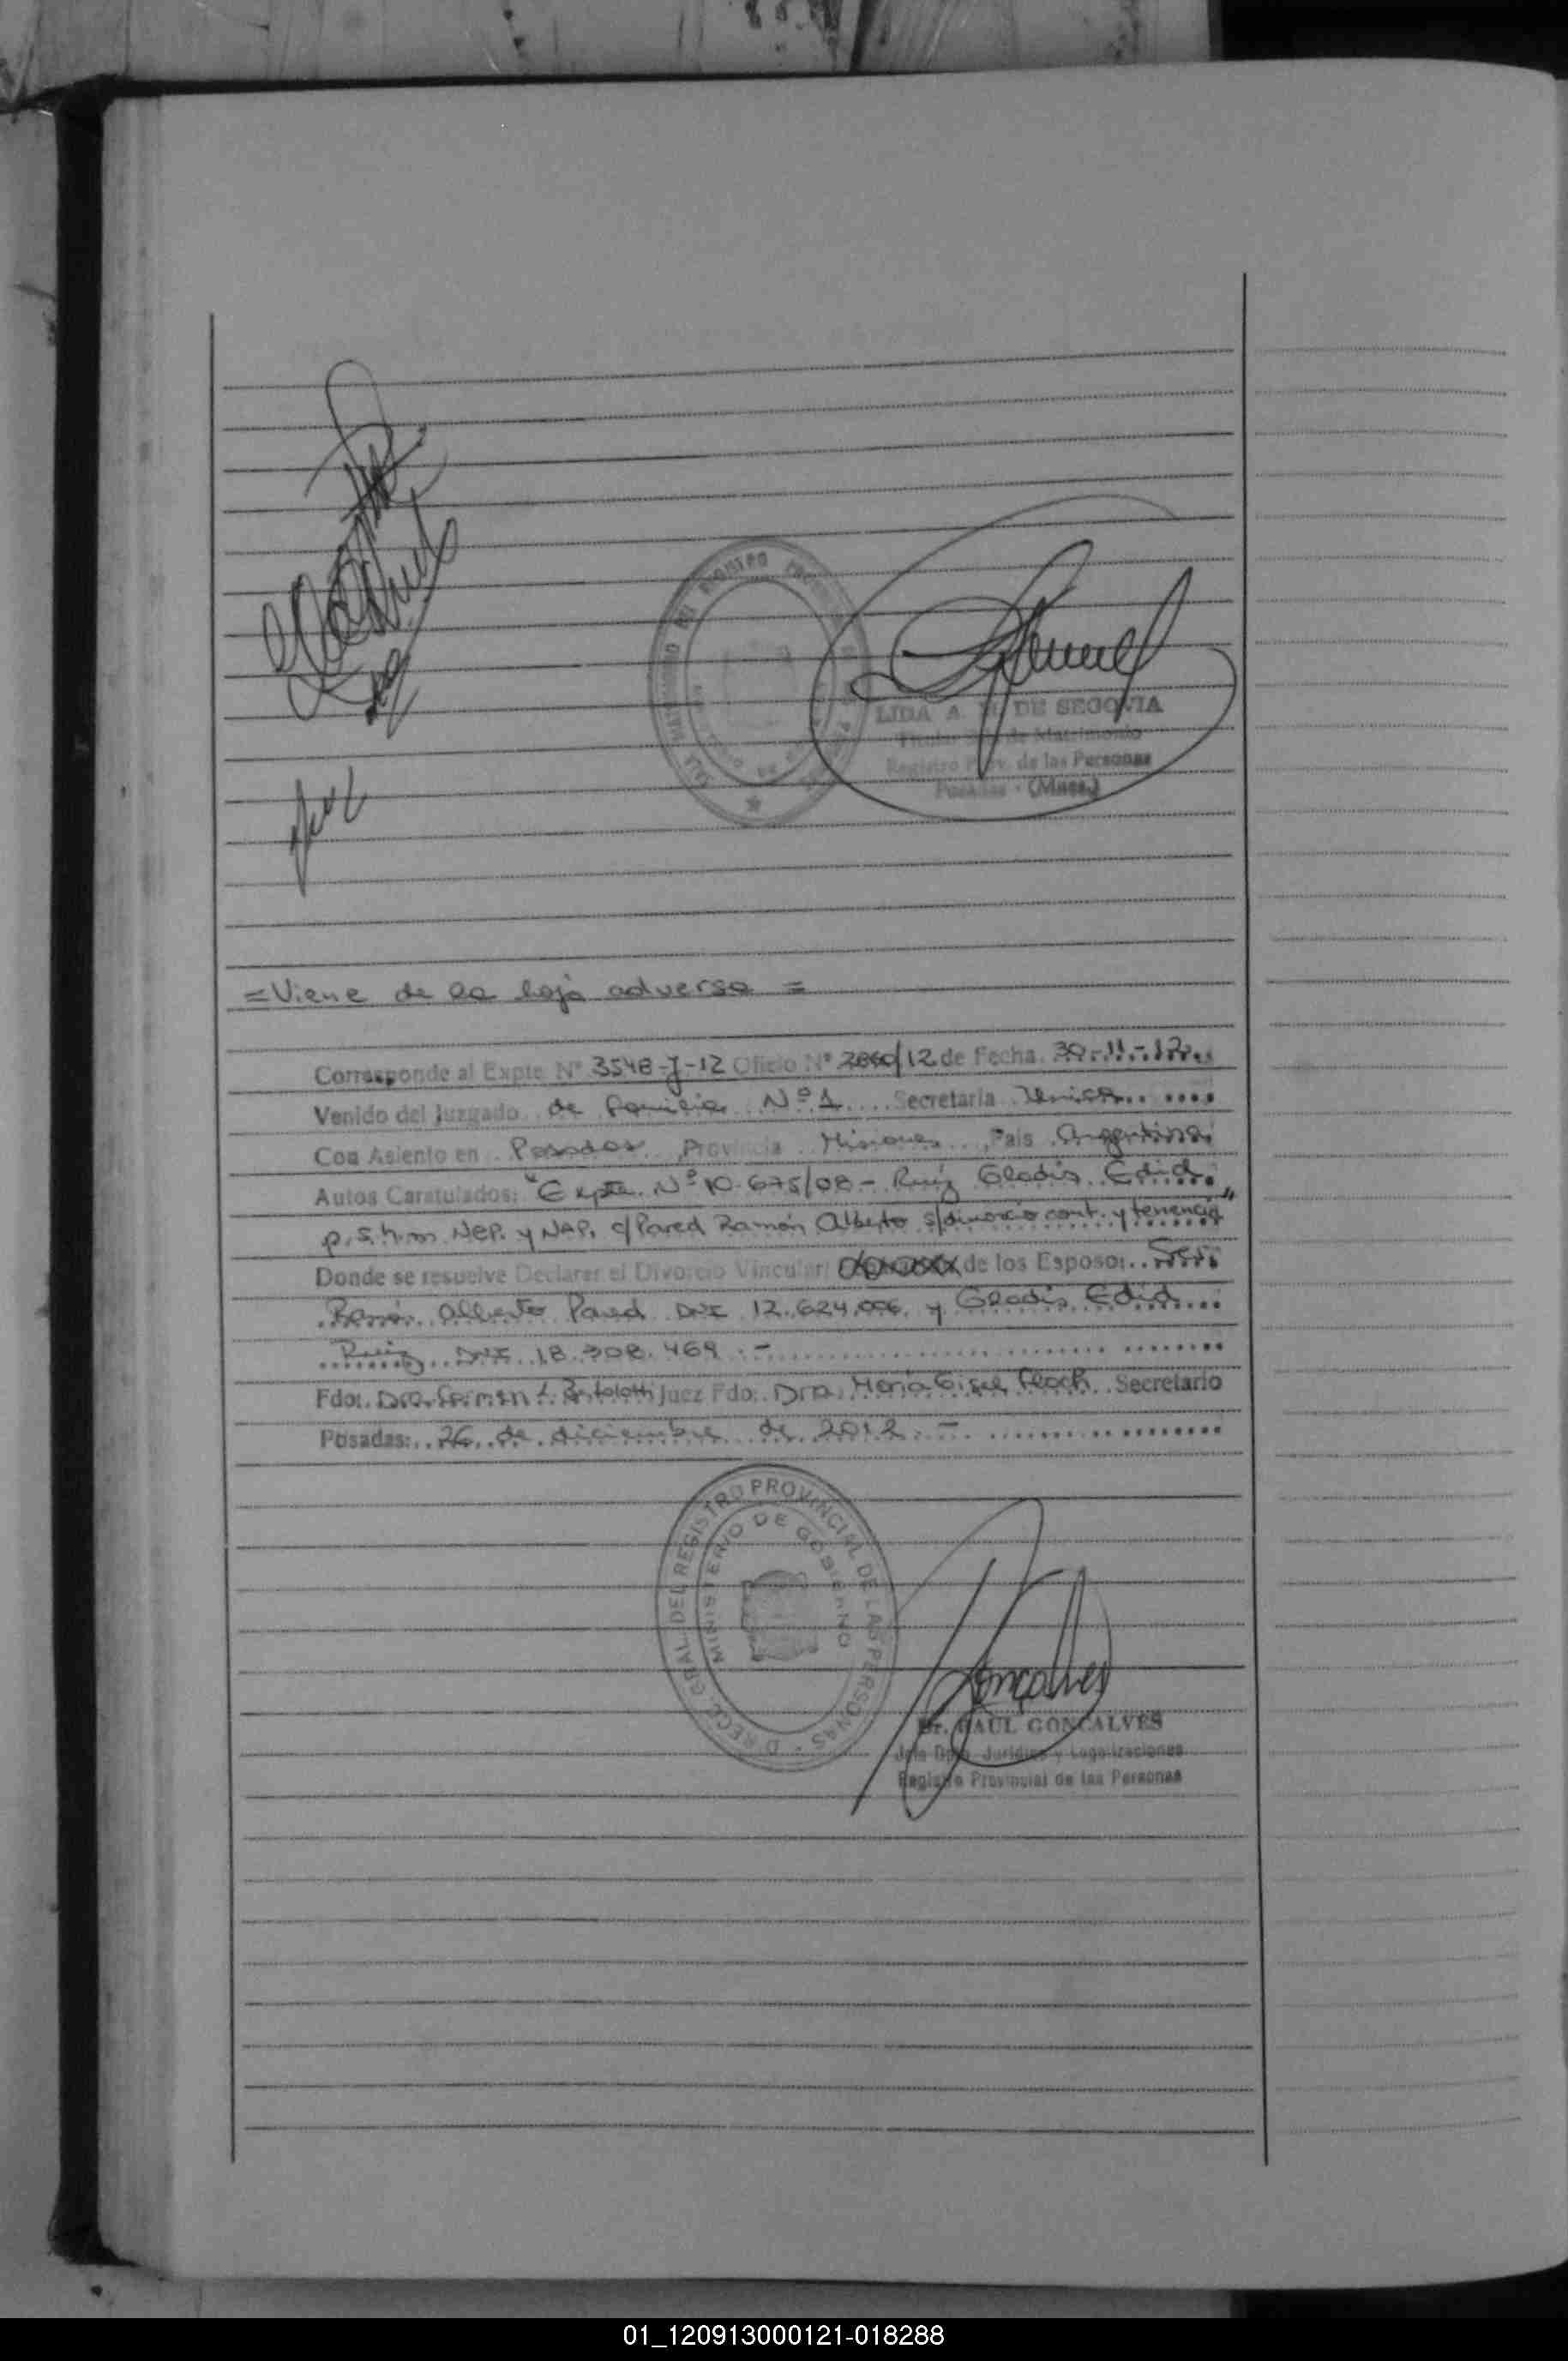 LIDA A. DE SEGOVIA
Titular de Matrimonio
Registro Prov. de las Personas
Posadas - (Mnes.)
= Viene de la hoja adversa =
Corresponde al Expte Nº 3548-J-12 Oficio Nº /12 de Fecha 30-11-12
Venido del Juzgado de Familia Nº 1 Secretaria Unica
Con Asiento en Posadas Provincia Misiones País Argentina
Autos Caratulados: "Expte. Nº 10.675/08 - Ruiz Gladis Edid
p.s.h.m NEP. y NAP. c/Pared Ramón Alberto s/divorcio cont. y tenencia"
Donde se resuelve Declarar el Divorcio Vincular de los Esposos: Sres.
Ramón Alberto Pared DNI 12.624.006 y Gladis Edid
Ruiz DNI 18.308.469.-
Fdo: Dra. Carmen L. Bertolotti Juez Fdo: Dra. María Gisel Secretario
Posadas: 26 de diciembre de 2012.-
DIRECC. GRAL. DEL REGISTRO PROVINCIAL DE LAS PERSONAS
MINISTERIO DE GOBIERNO
Goncalves
Dr. RAUL GONCALVES
Jefe Dpto. Jurídico y Legalizaciones
Registro Provincial de las Personas
01_120913000121-018288